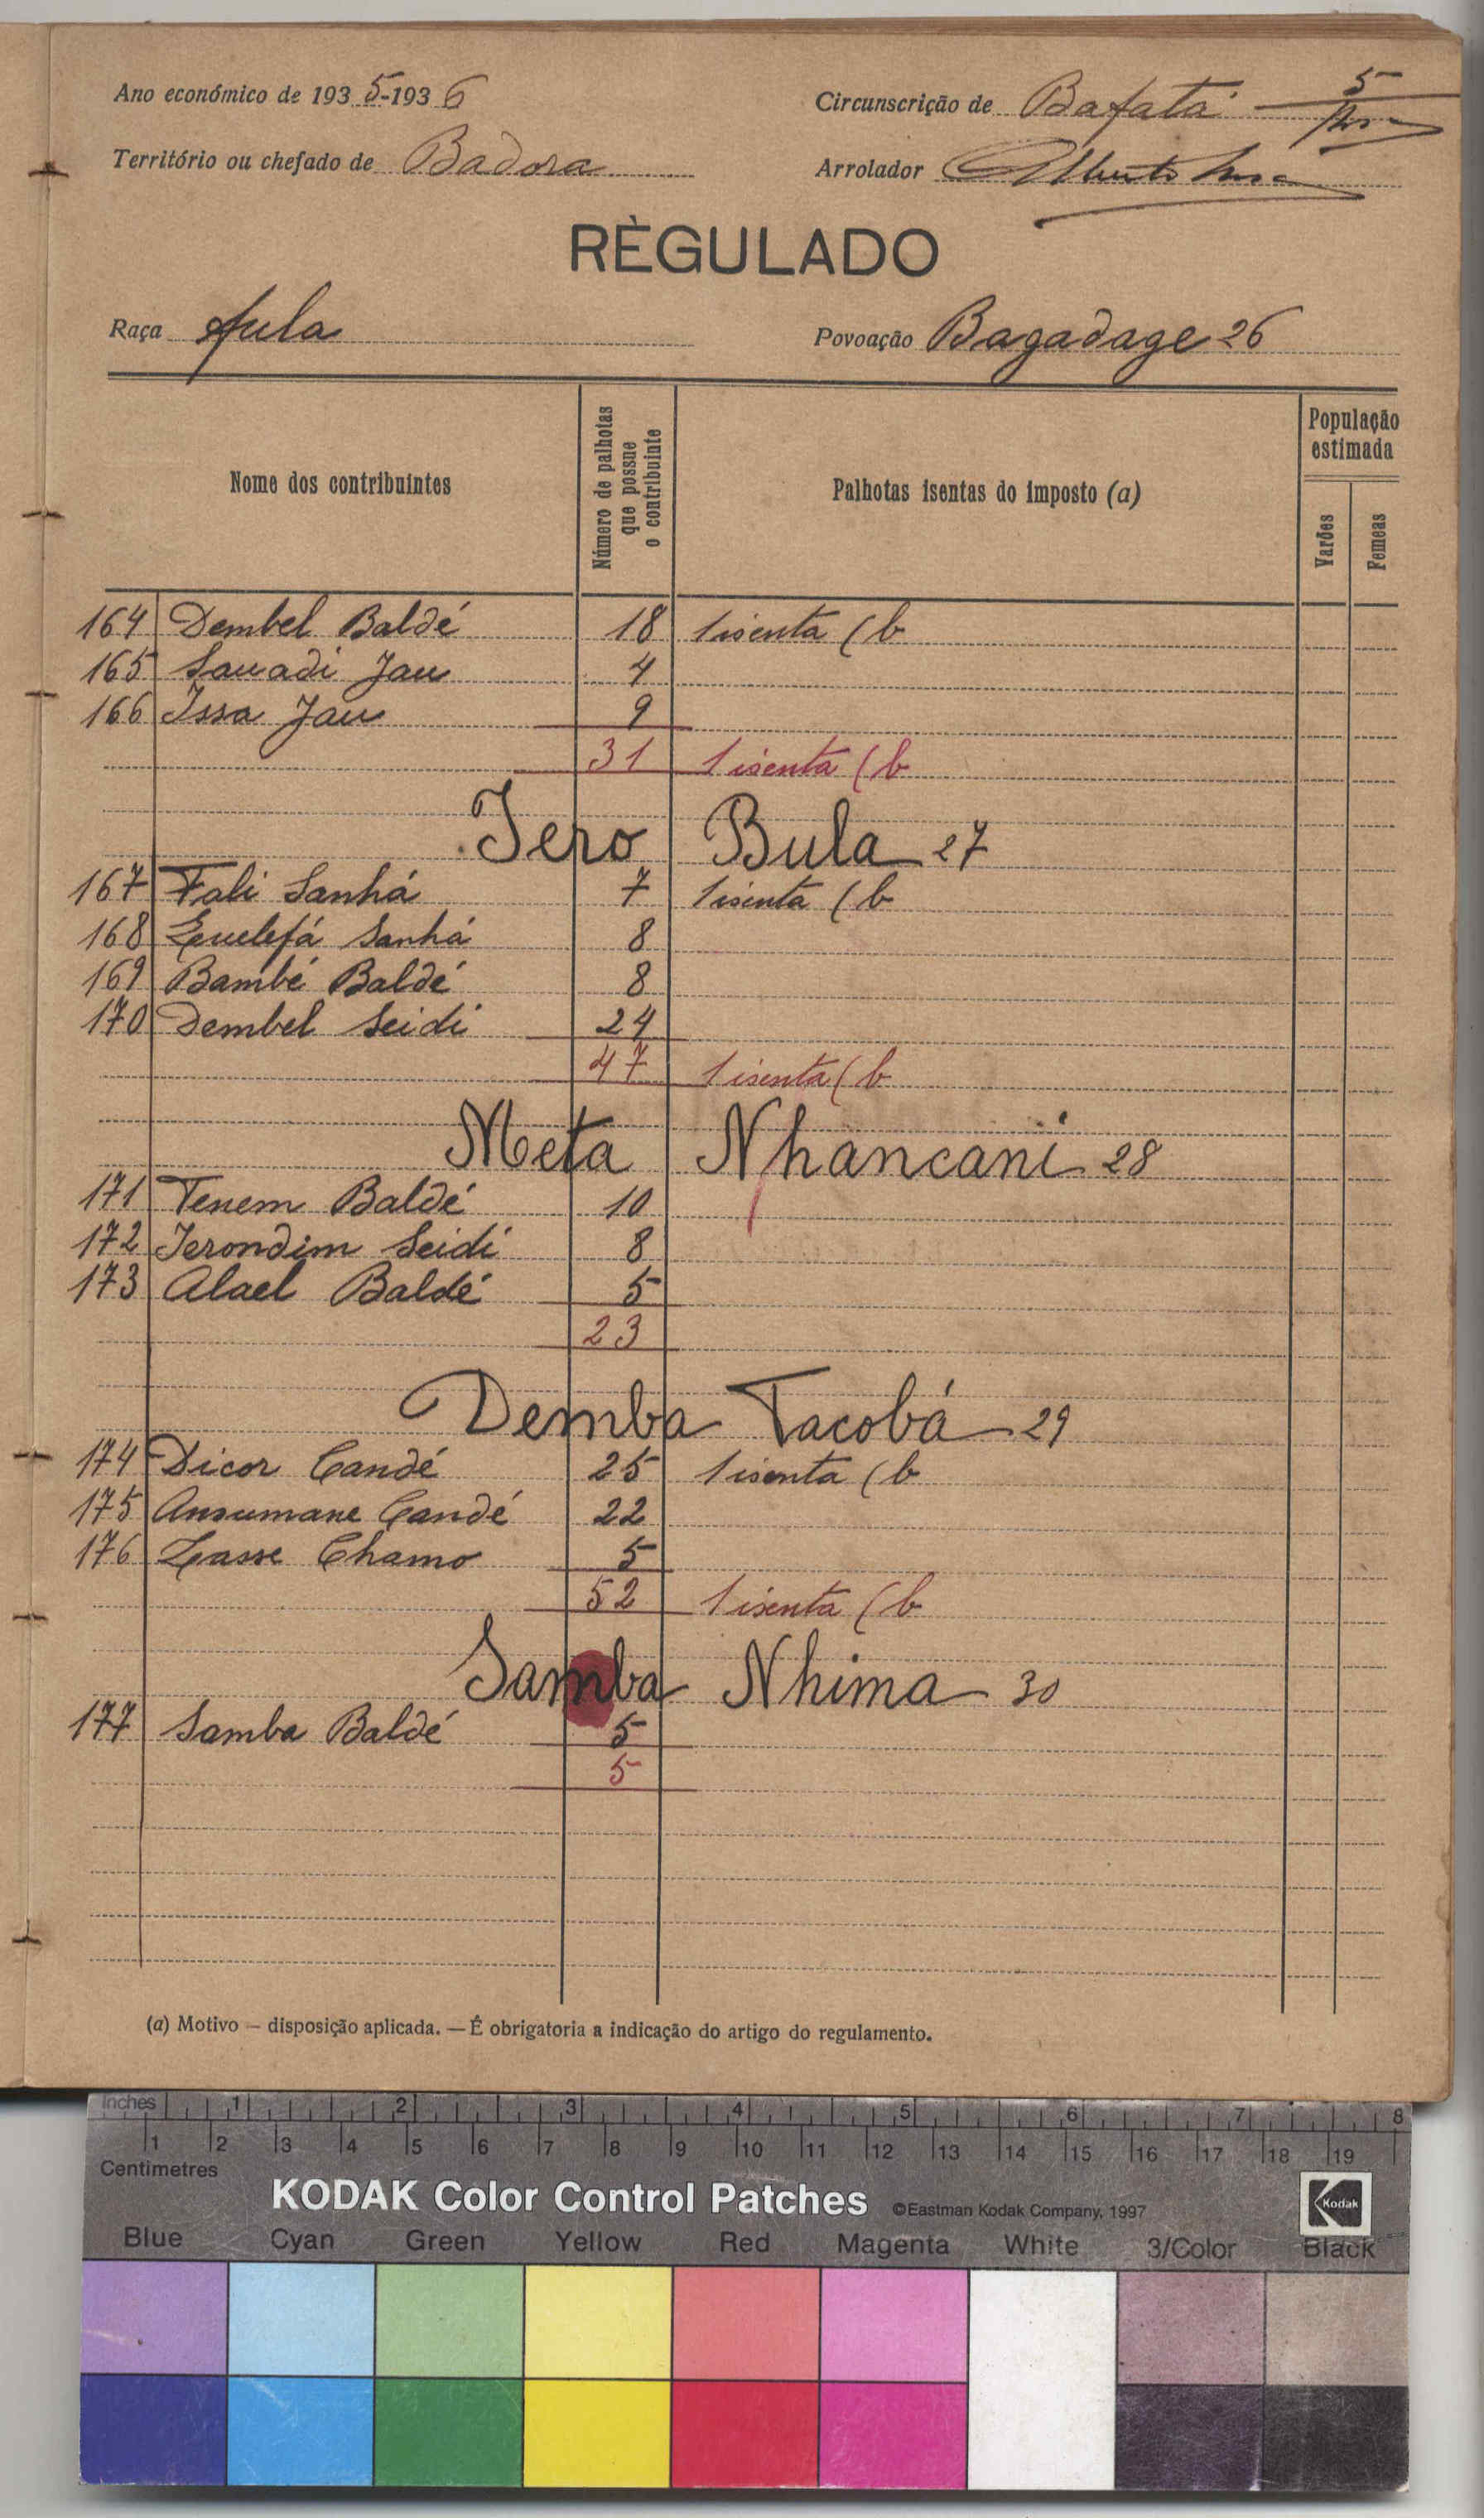 Ano económico de 1935-1936
Circunscrição de Bafatá 5
Território ou chefado de Badora
Arrolador Alberto
RÈGULADO
Raça Fula
Povoação Bagadage 26
Nome dos contribuintes
Número de palhotas que possue o contribuinte
Palhotas isentas do imposto (a)
População estimada
Varões
Femeas
164 Dembel Baldé 18 1 isenta (b
165 Sauadi Jau 4
166 Issa Jau 9
31 1 isenta (b
Jero Bula 27
167 Fali Sanhá 7 1 isenta (b
168 Quelefá Sanhá 8
169 Bambé Baldé 8
170 Dembel Seidi 24
47 1 isenta (b
Meta Nhancani 28
171 Tenem Baldé 10
172 Jerondim Seidi 8
173 Alael Baldé 5
23
Demba Tacobá 29
174 Dicor Candé 25 1 isenta (b
175 Ansumane Candé 22
176 Lasse Chamo 5
52 1 isenta (b
Samba Nhima 30
177 Samba Baldé 5
5
(a) Motivo — disposição aplicada. — É obrigatoria a indicação do artigo do regulamento.
Inches 1 2 3 4 5 6 7 8
1 2 3 4 5 6 7 8 9 10 11 12 13 14 15 16 17 18 19
Centimetres
KODAK Color Control Patches ©Eastman Kodak Company, 1997 Kodak
Blue Cyan Green Yellow Red Magenta White 3/Color Black